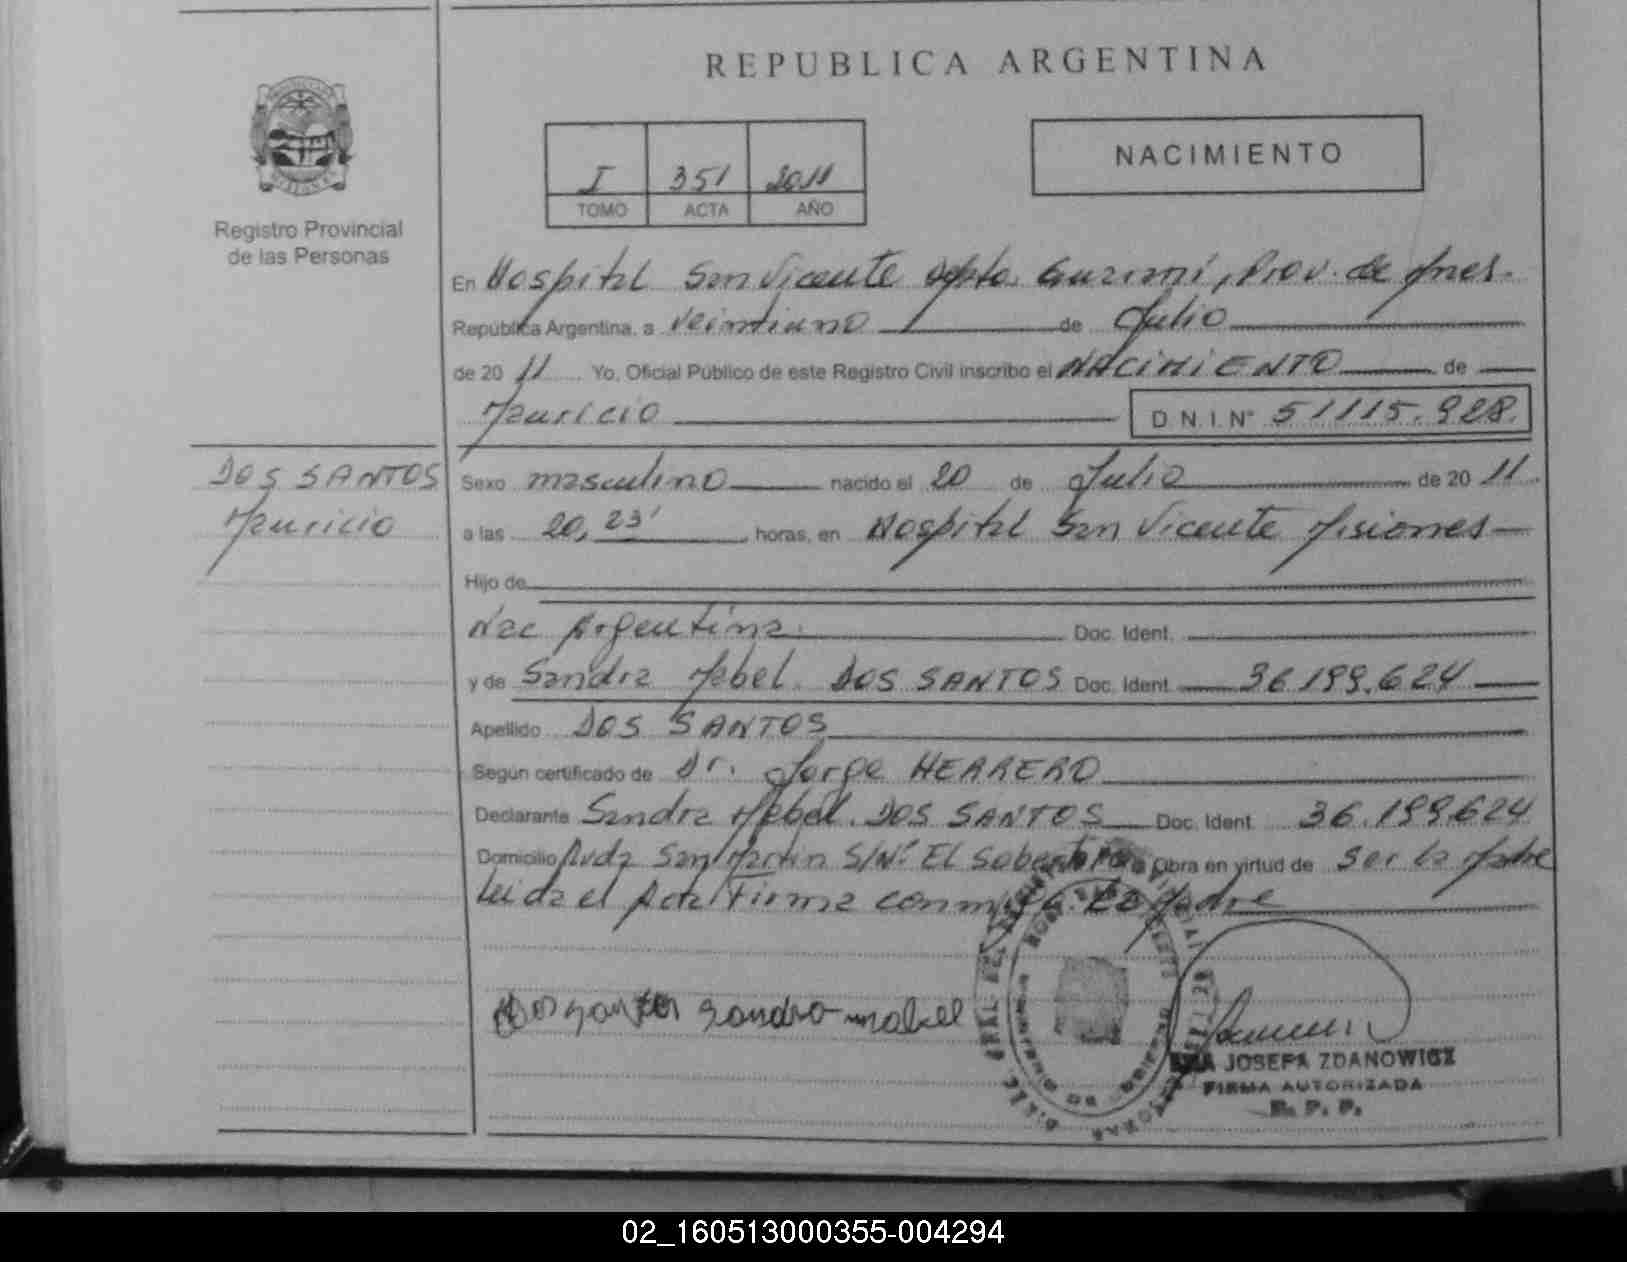 REPUBLICA ARGENTINA
NACIMIENTO
I 351 2011
TOMO ACTA AÑO
Registro Provincial
de las Personas
En Hospital San Vicente Dpto. Guarani, Prov. de Mnes.
República Argentina, a veintiuno de Julio
de 2011 Yo, Oficial Público de este Registro Civil inscribo el NACIMIENTO de
Mauricio D.N.I. N° 51115.928.
DOS SANTOS
Mauricio
Sexo masculino nacido el 20 de Julio de 2011.
a las 20,23' horas, en Hospital San Vicente Misiones
Hijo de
Nac Argentina. Doc. Ident.
y de Sandra Mabel. DOS SANTOS Doc. Ident. 36.199.624
Apellido DOS SANTOS
Según certificado de Dr. Jorge HERRERO
Declarante Sandra Mabel. DOS SANTOS Doc. Ident. 36.199.624
Domicilio Avda San Martin S/N° El Soberbio Obra en virtud de Ser la Madre
Leida el Acta Firma conmigo. La Madre
Dos santos sandra mabel
JOSEFA ZDANOWICZ
FIRMA AUTORIZADA
R. P. P.
02_160513000355-004294